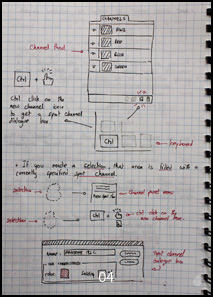 CHANNELS
RGB
RED
GREEN
Channel Panel
Ctrl
+
Ctrl click on the
new channel icon
to get a spot channel
dialogue box
Keyboard
• If you made a selection, that area is filled with a
currently specified spot channel.
Selection
Channel panel menu
Selection
Ctrl +
ctrl click on the
new channel icon.
Name:
Spot channel
dialogue box
Solidity
04